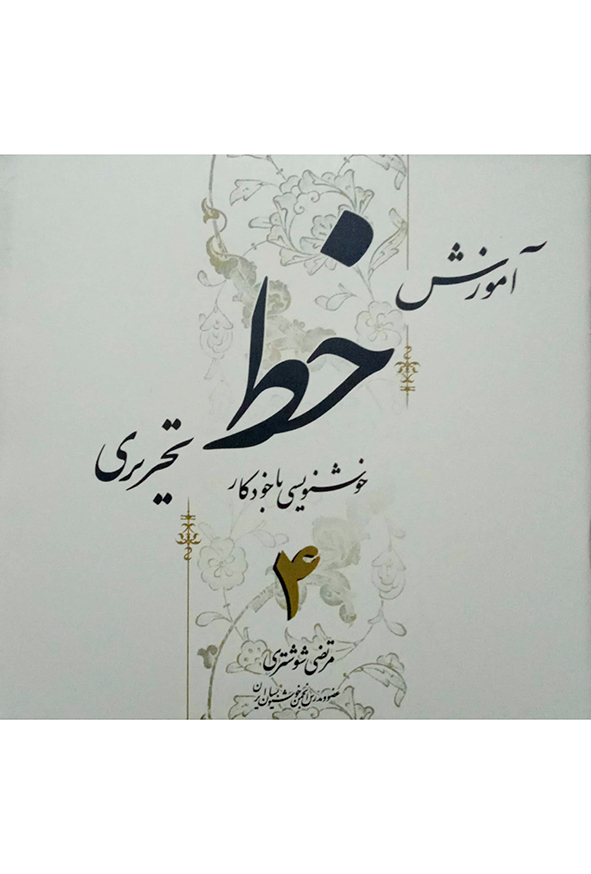 آموزش
خط
تحریری
خوشنویسی با خودکار
۴
مرتضی شوشتری
عضو و مدرس انجمن خوشنویسان ایران